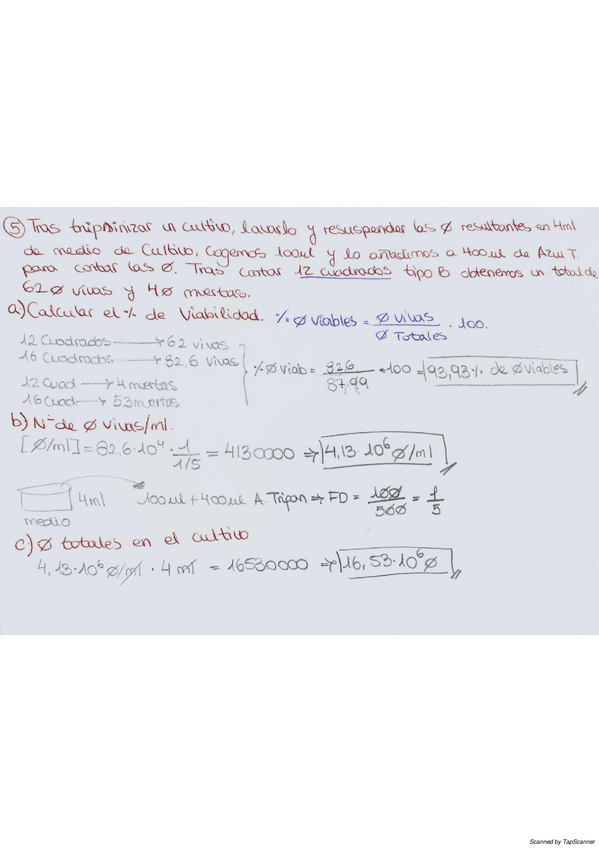 ⑤ Tras tripsinizar un cultivo, lavarlo y resuspender las Ø resultantes en 4ml
de medio de Cultivo, Cogemos 100ul y lo añadimos a 400ul de Azul T.
para contar las Ø. Tras contar 12 cuadrados tipo B obtenemos un total de
62Ø vivas y 4Ø muertas.
a) Calcular el % de Viabilidad. % Ø viables = Ø vivas / Ø Totales · 100.
12 Cuadrados → 62 vivas
16 Cuadrados → 82,6 vivas
12 Cuad → 4 muertas
16 Cuad → 5,3 muertas
% Ø viab = 82,6 / 87,99 · 100 = 93,93% de Ø viables
b) Nº de Ø vivas/ml.
[Ø/ml] = 82,6·10⁴ · 1 / 1/5 = 4130000 ⇒ 4,13·10⁶ Ø/ml
4ml
medio
100ul + 400ul A. Tripan ⇒ FD = 100 / 500 = 1 / 5
c) Ø totales en el cultivo
4,13·10⁶ Ø/ml · 4 ml = 16530000 ⇒ 16,53·10⁶ Ø
Scanned by TapScanner